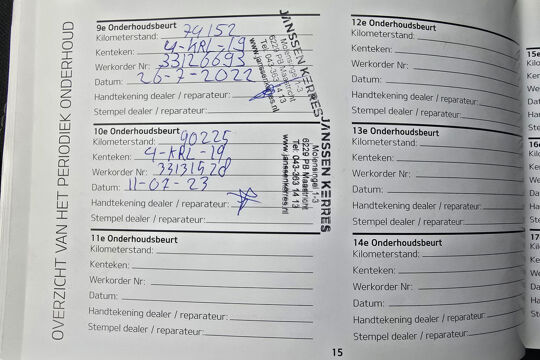 OVERZICHT VAN HET PERIODIEK ONDERHOUD
9e Onderhoudsbeurt
Kilometerstand: 74152
Kenteken: 4-KRL-19
Werkorder Nr: 33126693
Datum: 26-7-2022
Handtekening dealer / reparateur:
Stempel dealer / reparateur:
JANSSEN KERRES
Molensingel 1-3
6229 PB Maastricht
Tel: 043-363 14 13
www.janssenkerres.nl
10e Onderhoudsbeurt
Kilometerstand: 90225
Kenteken: 4-KRL-19
Werkorder Nr: 33131528
Datum: 11-07-23
Handtekening dealer / reparateur:
Stempel dealer / reparateur:
JANSSEN KERRES
Molensingel 1-3
6229 PB Maastricht
Tel: 043-363 14 13
www.janssenkerres.nl
11e Onderhoudsbeurt
Kilometerstand:
Kenteken:
Werkorder Nr:
Datum:
Handtekening dealer / reparateur:
Stempel dealer / reparateur:
12e Onderhoudsbeurt
Kilometerstand:
Kenteken:
Werkorder Nr:
Datum:
Handtekening dealer / reparateur:
Stempel dealer / reparateur:
13e Onderhoudsbeurt
Kilometerstand:
Kenteken:
Werkorder Nr:
Datum:
Handtekening dealer / reparateur:
Stempel dealer / reparateur:
14e Onderhoudsbeurt
Kilometerstand:
Kenteken:
Werkorder Nr:
Datum:
Handtekening dealer / reparateur:
Stempel dealer / reparateur:
15